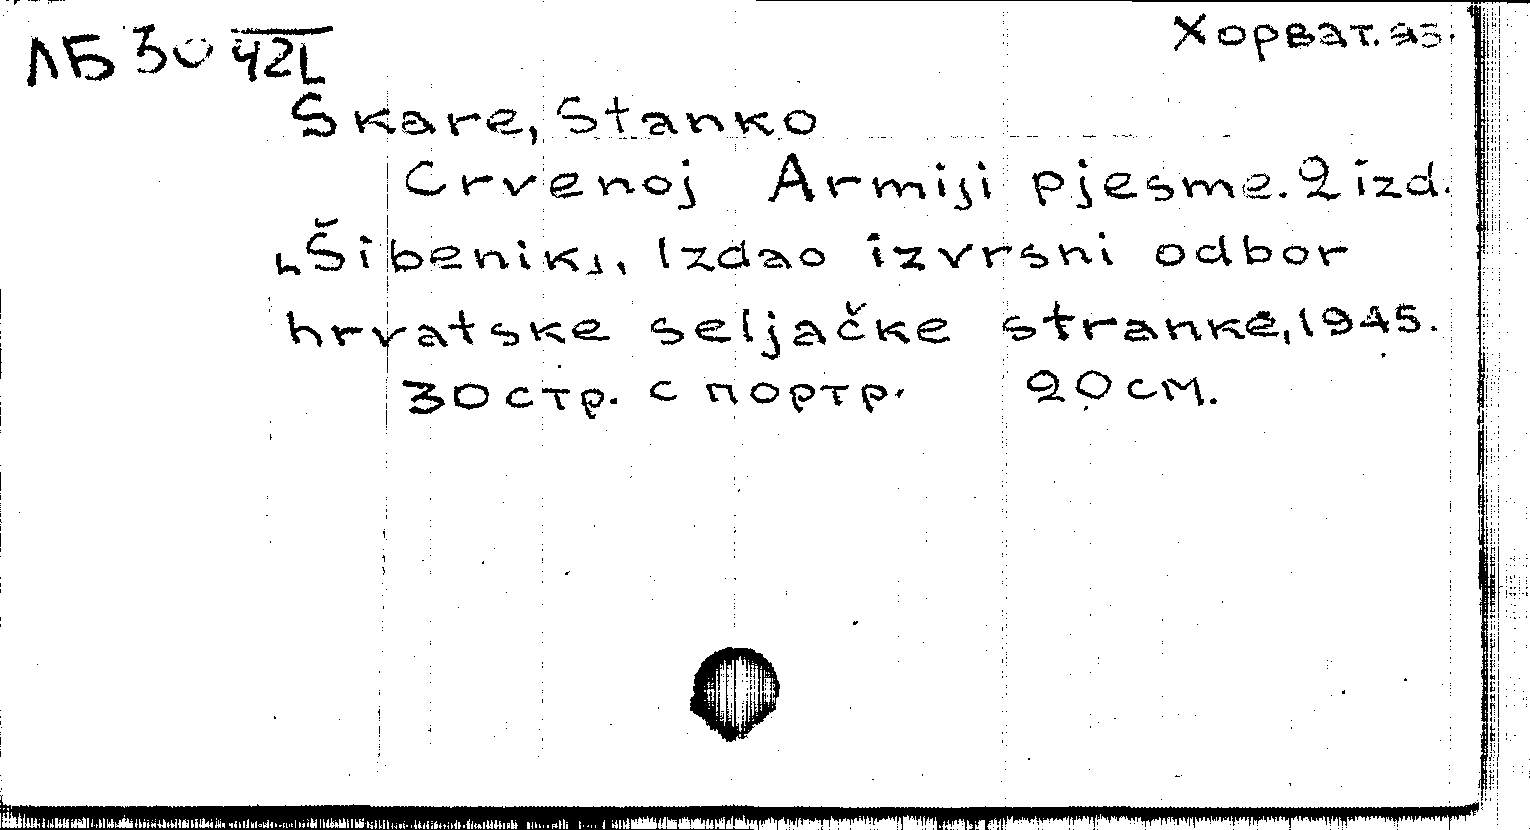 ЛБ 30 42L
Хорват. яз.
Skare, Stanko
Crvenoj Armiji pjesme. 2 izd.
„Šibenik„, Izdao izvrsni odbor
hrvatske seljačke stranke, 1945.
30 стр. с портр. 20 см.